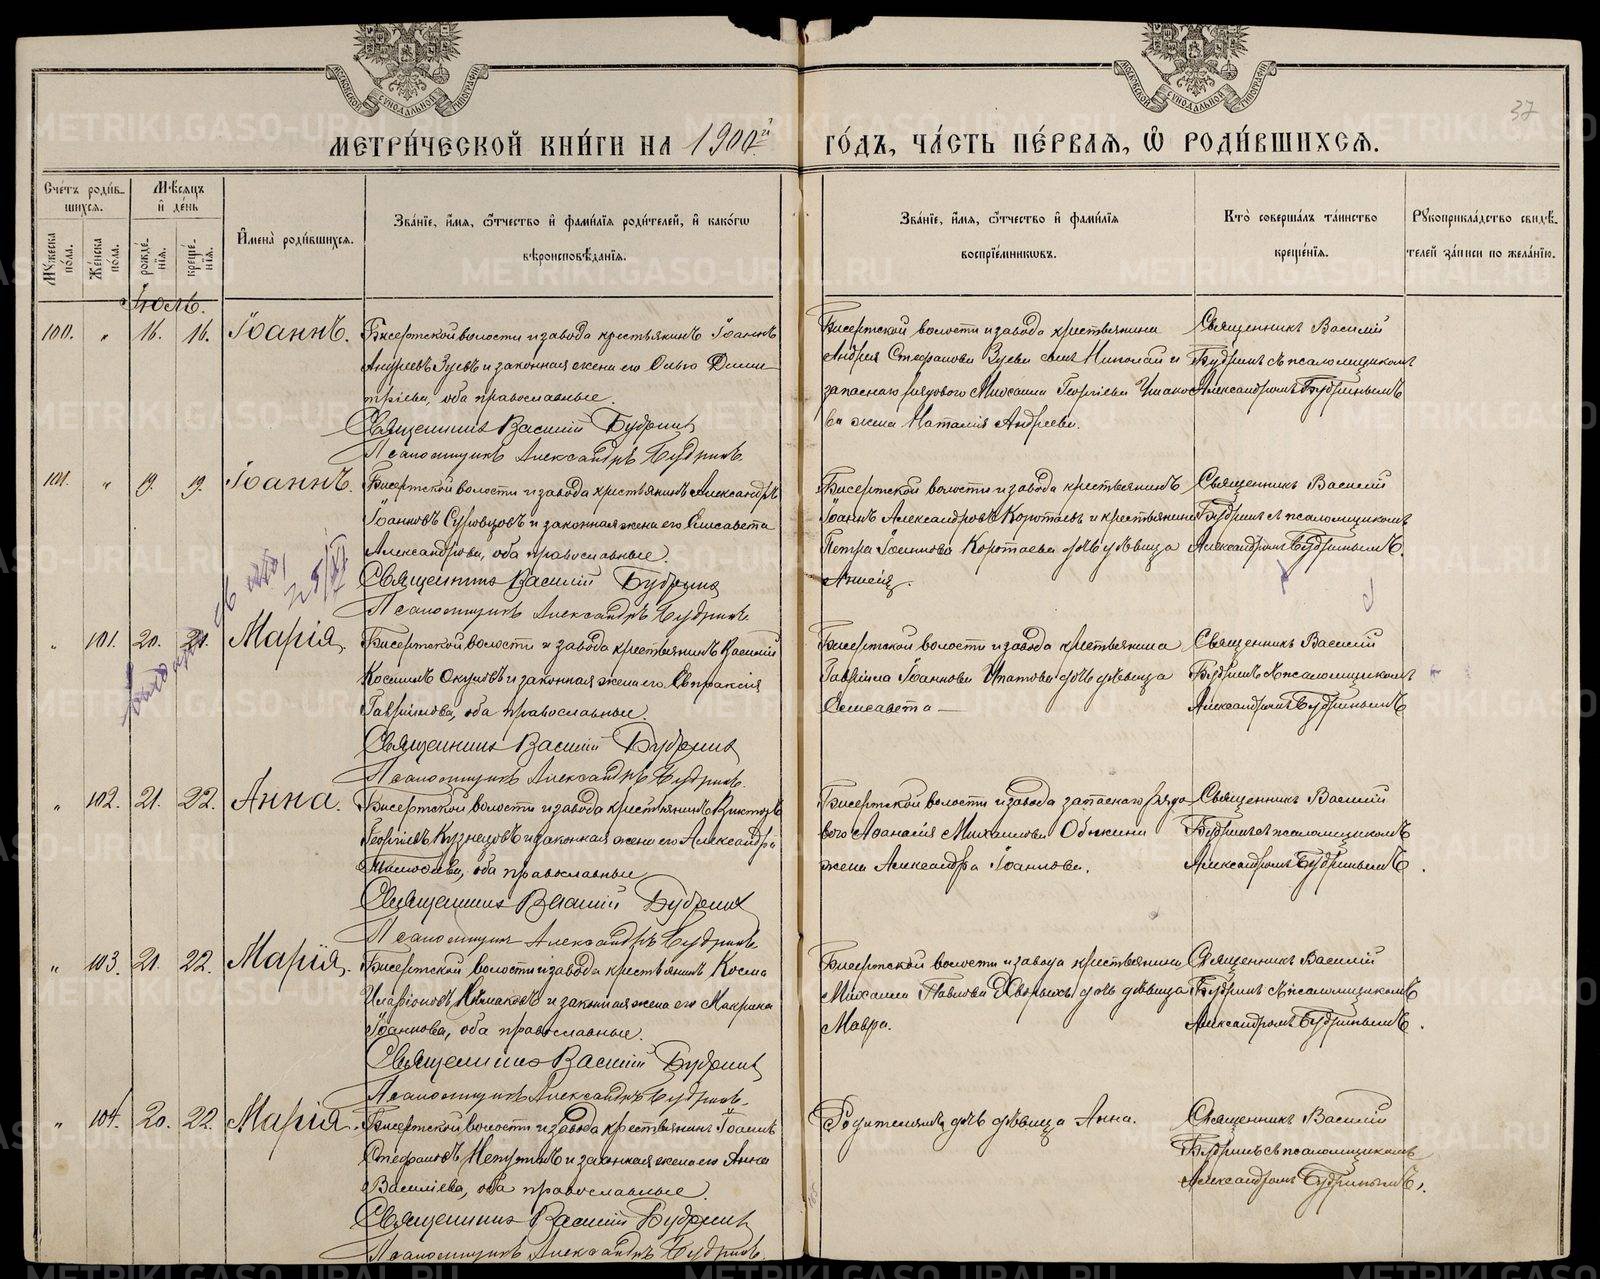 МОСКОВСКОЙ СѴНОДАЛЬНОЙ ТИПОГРАФІИ
МОСКОВСКОЙ СѴНОДАЛЬНОЙ ТИПОГРАФІИ
37
МЕТРИ́ЧЕСКОЙ КНИ́ГИ НА 1900й
ГО́ДЪ, ЧА́СТЬ ПЕ́РВАЯ, Ѡ҆ РОДИ́ВШИХСЯ.
Сче́тъ роди́в-
шихся.
Му́жеска по́ла.
Же́нска по́ла.
Мѣ́сяцъ
и҆ де́нь
рожде́нїя.
креще́нїя.
И҆мена̀ роди́вшихся.
Зва́нїе, и҆́мя, ѻ҆́тчество и҆ фами́лїя роди́телей, и҆ како́гѡ
вѣроисповѣ́данїя.
Зва́нїе, и҆́мя, ѻ҆́тчество и҆ фами́лїя
воспрїе́мникѡвъ.
Кто̀ соверша́лъ та́инство
креще́нїя.
Рꙋкоприкла́дство свидѣ́-
телей за́писи по жела́нїю.
Іюль.
100. „ 16. 16. Іоаннъ.
Бисертской волости и завода крестьянинъ Іоаннъ
Андреевъ Зуевъ и законная жена его Ольга Дими-
тріева, оба православные.
Священникъ Василій Будринъ
Псаломщикъ Александръ Будринъ.
Бисертской волости и завода крестьянина
Андрея Стефанова Зуева сынъ Николай и
запаснаго рядового Михаила Георгіева Ушако-
ва жена Наталія Андреева.
Священникъ Василій
Будринъ съ псаломщикомъ
Александромъ Будринымъ
101. „ 19. 19. Іоаннъ.
Бисертской волости и завода крестьянинъ Александръ
Іоанновъ Суровцовъ и законная жена его Елисавета
Александрова, оба православные.
Священникъ Василій Будринъ
Псаломщикъ Александръ Будринъ.
Бисертской волости и завода крестьянинъ
Іоаннъ Александровъ Коротаевъ и крестьянина
Петра Іоаннова Коротаева дочь дѣвица
Священникъ Василій
Будринъ съ псаломщикомъ
Александромъ Будринымъ.
„ 101. 20. 21. Марія.
Бисертской волости и завода крестьянинъ Василій
Косминъ Окуловъ и законная жена его Евпраксія
Гавріилова, оба православные.
Священникъ Василій Будринъ
Псаломщикъ Александръ Будринъ.
Бисертской волости и завода крестьянина
Гавріила Іоаннова Ипатова дочь дѣвица
Елисавета
Священникъ Василій
Будринъ съ псаломщикомъ
Александромъ Будринымъ
„ 102. 21. 22. Анна.
Бисертской волости и завода крестьянинъ Викторъ
Георгіевъ Кузнецовъ и законная жена его Александра
оба православные
Священникъ Василій Будринъ
Псаломщикъ Александръ Будринъ.
Бисертской волости и завода запаснаго рядо-
вого Аѳанасія Михаилова
жена Александра Іоаннова.
Священникъ Василій
Будринъ съ псаломщикомъ
Александромъ Будринымъ.
„ 103. 21. 22. Марія.
Бисертской волости и завода крестьянинъ Косма
Иларіоновъ и законная жена его Макрина
Іоаннова, оба православные.
Священникъ Василій Будринъ
Псаломщикъ Александръ Будринъ.
Бисертской волости и завода крестьянина
Михаила Павлова дочь дѣвица
Мавра.
Священникъ Василій
Будринъ съ псаломщикомъ
Александромъ Будринымъ.
„ 104. 20. 22. Марія.
Бисертской волости и завода крестьянинъ Іоаннъ
Стефановъ и законная жена его Анна
Василіева, оба православные.
Священникъ Василій Будринъ
Псаломщикъ Александръ Будринъ.
дочь дѣвица Анна.
Священникъ Василій
Будринъ съ псаломщикомъ
Александромъ Будринымъ.
METRIKI.GASO-URAL.RU